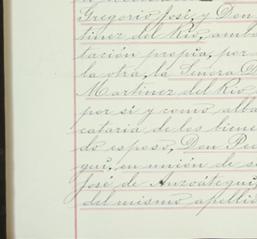 Gregorio José, y Don
tinez del Rio, ambo
tación propia, por
la otra, la Señora D
Martinez del Rio
por si y como alba
cataria de los biene
do esposo, Don Pe
gui, en union de s
José de Anzoátegui
del mismo apellid